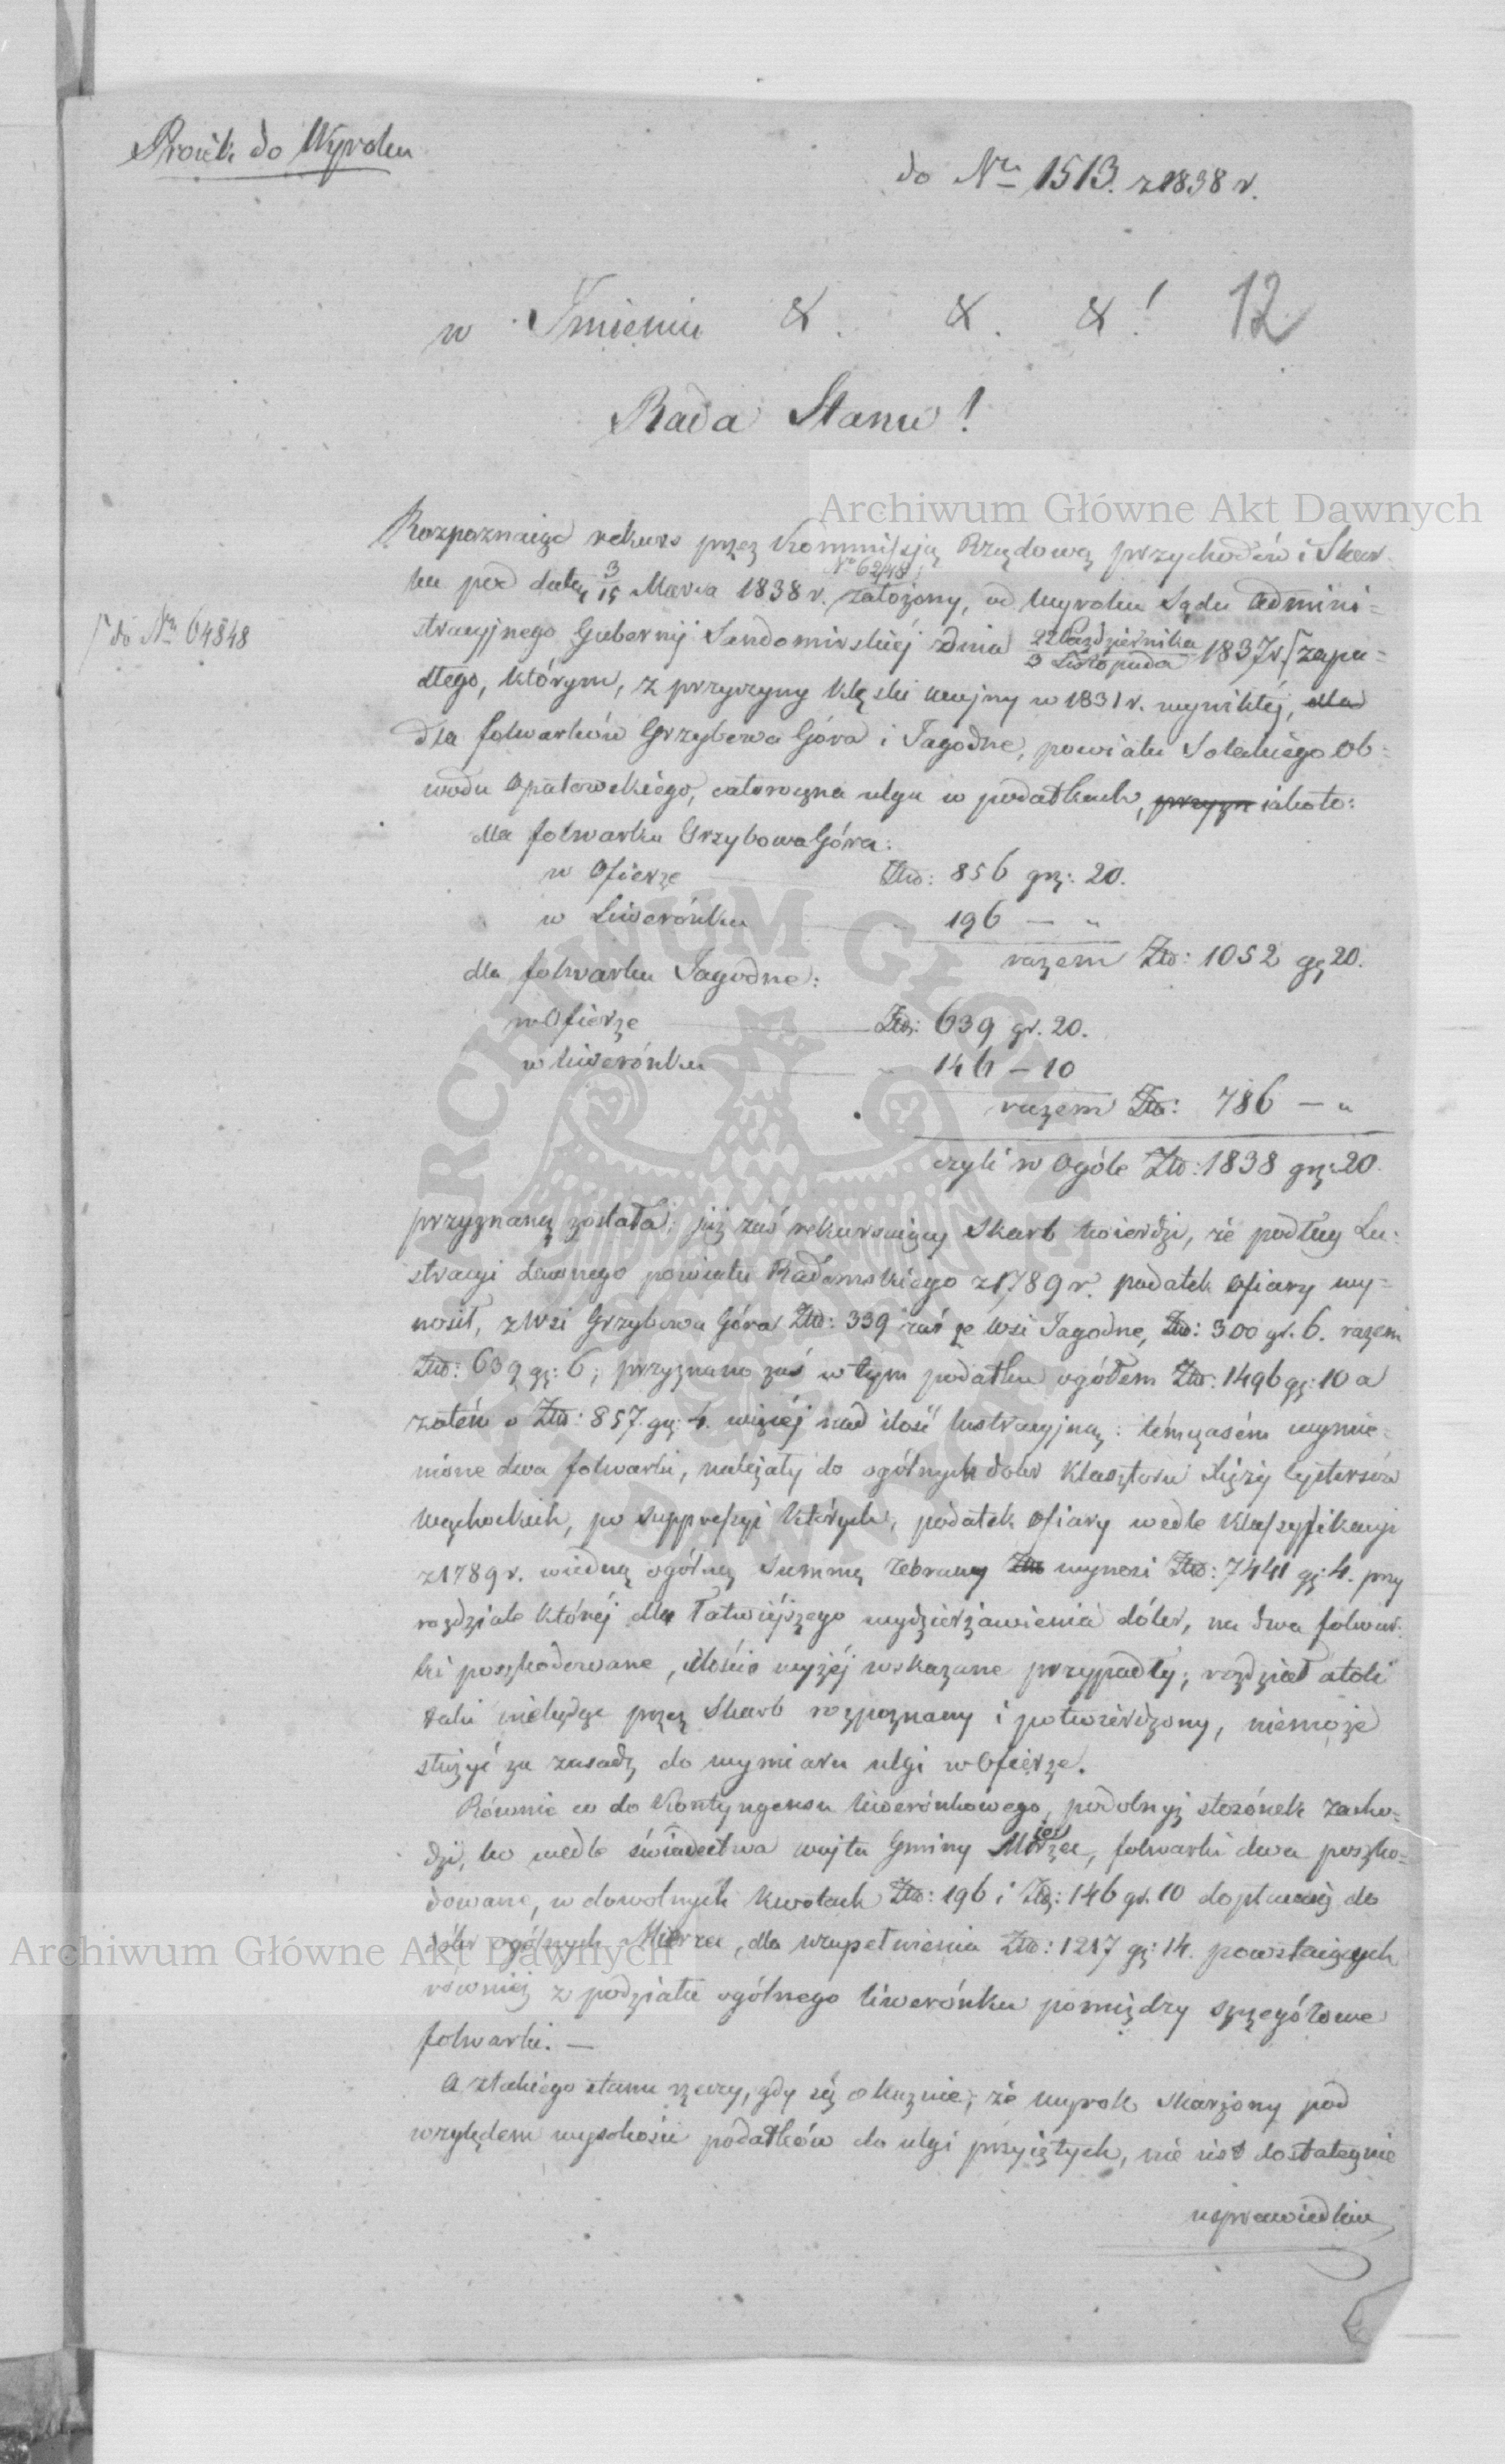 Proiekt do Wyroku
do Nru 1513. z 1838 r.
w Imieniu &. &. &!
12
Rada Stanu!
Archiwum Główne Akt Dawnych
Rozpoznaiąc rekurs przez Kommissją Rządową przychodów i Skar-
bu pod datą 3/15 Marca 1838 r. Nr 6248, założony, od Wyroku Sądu Admini=
stracyjnego Gubernij Sandomirskiéj dnia 22 Października/3 Listopada 1837 r. zapa=
do Nru 64848
dłego, którym, z przyczyny klęski wojny w 1831 r. wynikłéj, dla
dla folwarków Grzybowa Góra i Jagodne, powiatu Soleckiego Ob=
wodu Opatowskiego, całoroczna ulga w podatkach, przyzn iakoto:
dla folwarku Grzybowa Góra:
w Ofierze Złp: 856 gr: 20.
w Liwerónku 196 — „
razem Złp: 1052 gr 20.
dla folwarku Jagodne:
w Ofierze Złp: 639 gr. 20.
w Liwerónku 146 — 10
razem Złp: 786 — „
czyli w Ogóle Złp: 1838 gr: 20.
przyznaną została; już zaś rekursuiący Skarb twierdzi, że podług Lu:
stracyi dawnego powiatu Radomskiego z 1789 r. podatek Ofiary wy=
nosił, z Wsi Grzybowa Góra Złp: 339 zaś ze Wsi Jagodne, Złp: 300 gr. 6. razem
Złp: 639 gr: 6; przyznano zaś w tym podatku ogółem Złp: 1496 gr: 10 a
zatém o Złp: 857. gr: 4. więcéj nad ilość lustracyjną: témczasém wymie=
nione dwa folwarki, należały do ogólnych dóbr Klasztoru Xięży Cystersów
Wąchockich, po suppressyi których, podatek Ofiary wedle Klassyfikacyi
z 1789 r. w iedną ogólną Summę zebrany wynosi Złp: 7441 gr: 4. przy
rozdziale któréj dla łatwiéjszego wydzierżawienia dóbr, na dwa folwar:
ki poszkodowane, ilości wyżéj wskazane przypadły; rozdział atoli
taki niebędąc przez Skarb rozpoznany i potwierdzony, niemoże
służyć za zasadę do wymiaru ulgi w Ofierze.
Równie co do Kontyngensu liwerónkowego, podobnyż stosónek zacho=
dzi, bo wedle świadectwa wójta Gminy Mirzec, folwarki dwa poszko=
dowane, w dowolnych kwotach Złp: 196 i Złp: 146 gr. 10 dopłacaią do
dóbr ogólnych Mirzec, dla uzupełnienia Złp: 1217 gr: 14. powstaiących
Archiwum Główne Akt Dawnych
równiéż z podziału ogólnego liwerónku pomiędzy szczegółowe
folwarki. —
A z takiego stanu rzeczy, gdy się okazuie, że wyrok skarżony pod
względem wysokości podatków do ulgi przyiętych, nie iest dostatecznie
usprawiedliw